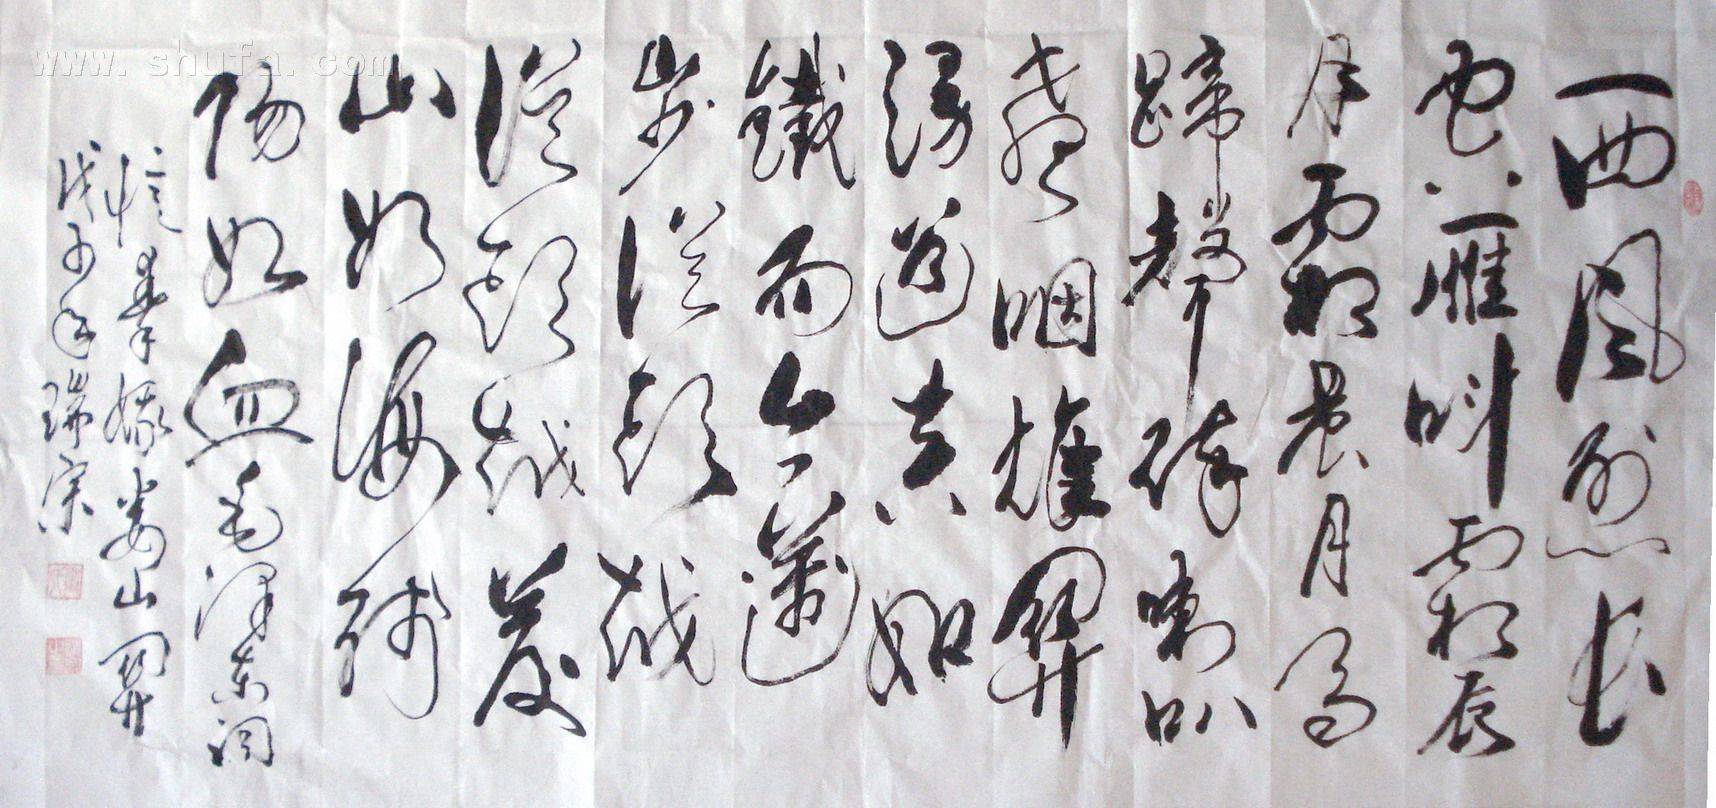 www.shufa.com
西風烈長
空雁叫霜晨
月霜晨月馬
蹄聲碎喇叭
聲咽雄關
漫道真如
鐵而今邁
步從頭越
從頭越蒼
山如海殘
陽如血毛澤東詞
憶秦娥婁山關
戊子年瑞宗